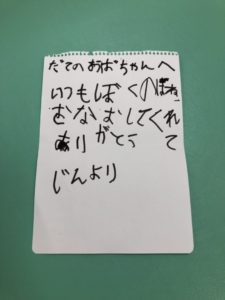 だてのおばちゃんへ
いつもぼくの
むなおしてくれ
ありがとう て
じんより